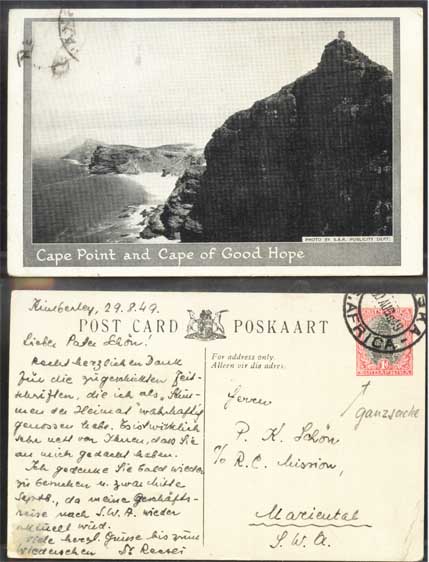 Cape Point and Cape of Good Hope
PHOTO BY S.A.R. PUBLICITY DEPT.
Kimberley, 29.8.49.
POST CARD POSKAART
Lieber Pater Schön!
Recht herzlichen Dank
für die zugeschickten Zeit-
schriften, die ich als "Stim-
men der Heimat" wahrhaftig
genossen habe. Es ist wirklich
sehr nett von Ihnen, dass Sie
an mich gedacht haben.
Ich gedenke Sie bald wieder
zu besuchen u. zwar Mitte
Septb., da meine Geschäfts-
reise nach S.W.A. wieder
aktuell wird.
Viele herzl. Grüsse bis zum
Wiedersehen
For address only.
Alleen vir die adres.
Herrn
P. K. Schön
c/o R.C. Mission,
Mariental
S.W.A.
ganzsache
AFRICA